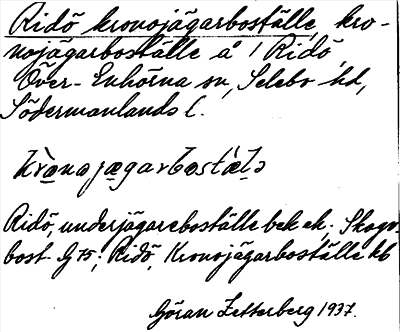 Ridö kronojägarboställe, kro-
nojägarboställe å 1 Ridö,
Över-Enhörna sn, Selebo hd,
Södermanlands l.
Ridö, underjägareboställe bek ek; Skogs-
bost G 75; Ridö, Kronojägarboställe kb
Göran Zetterberg 1937.